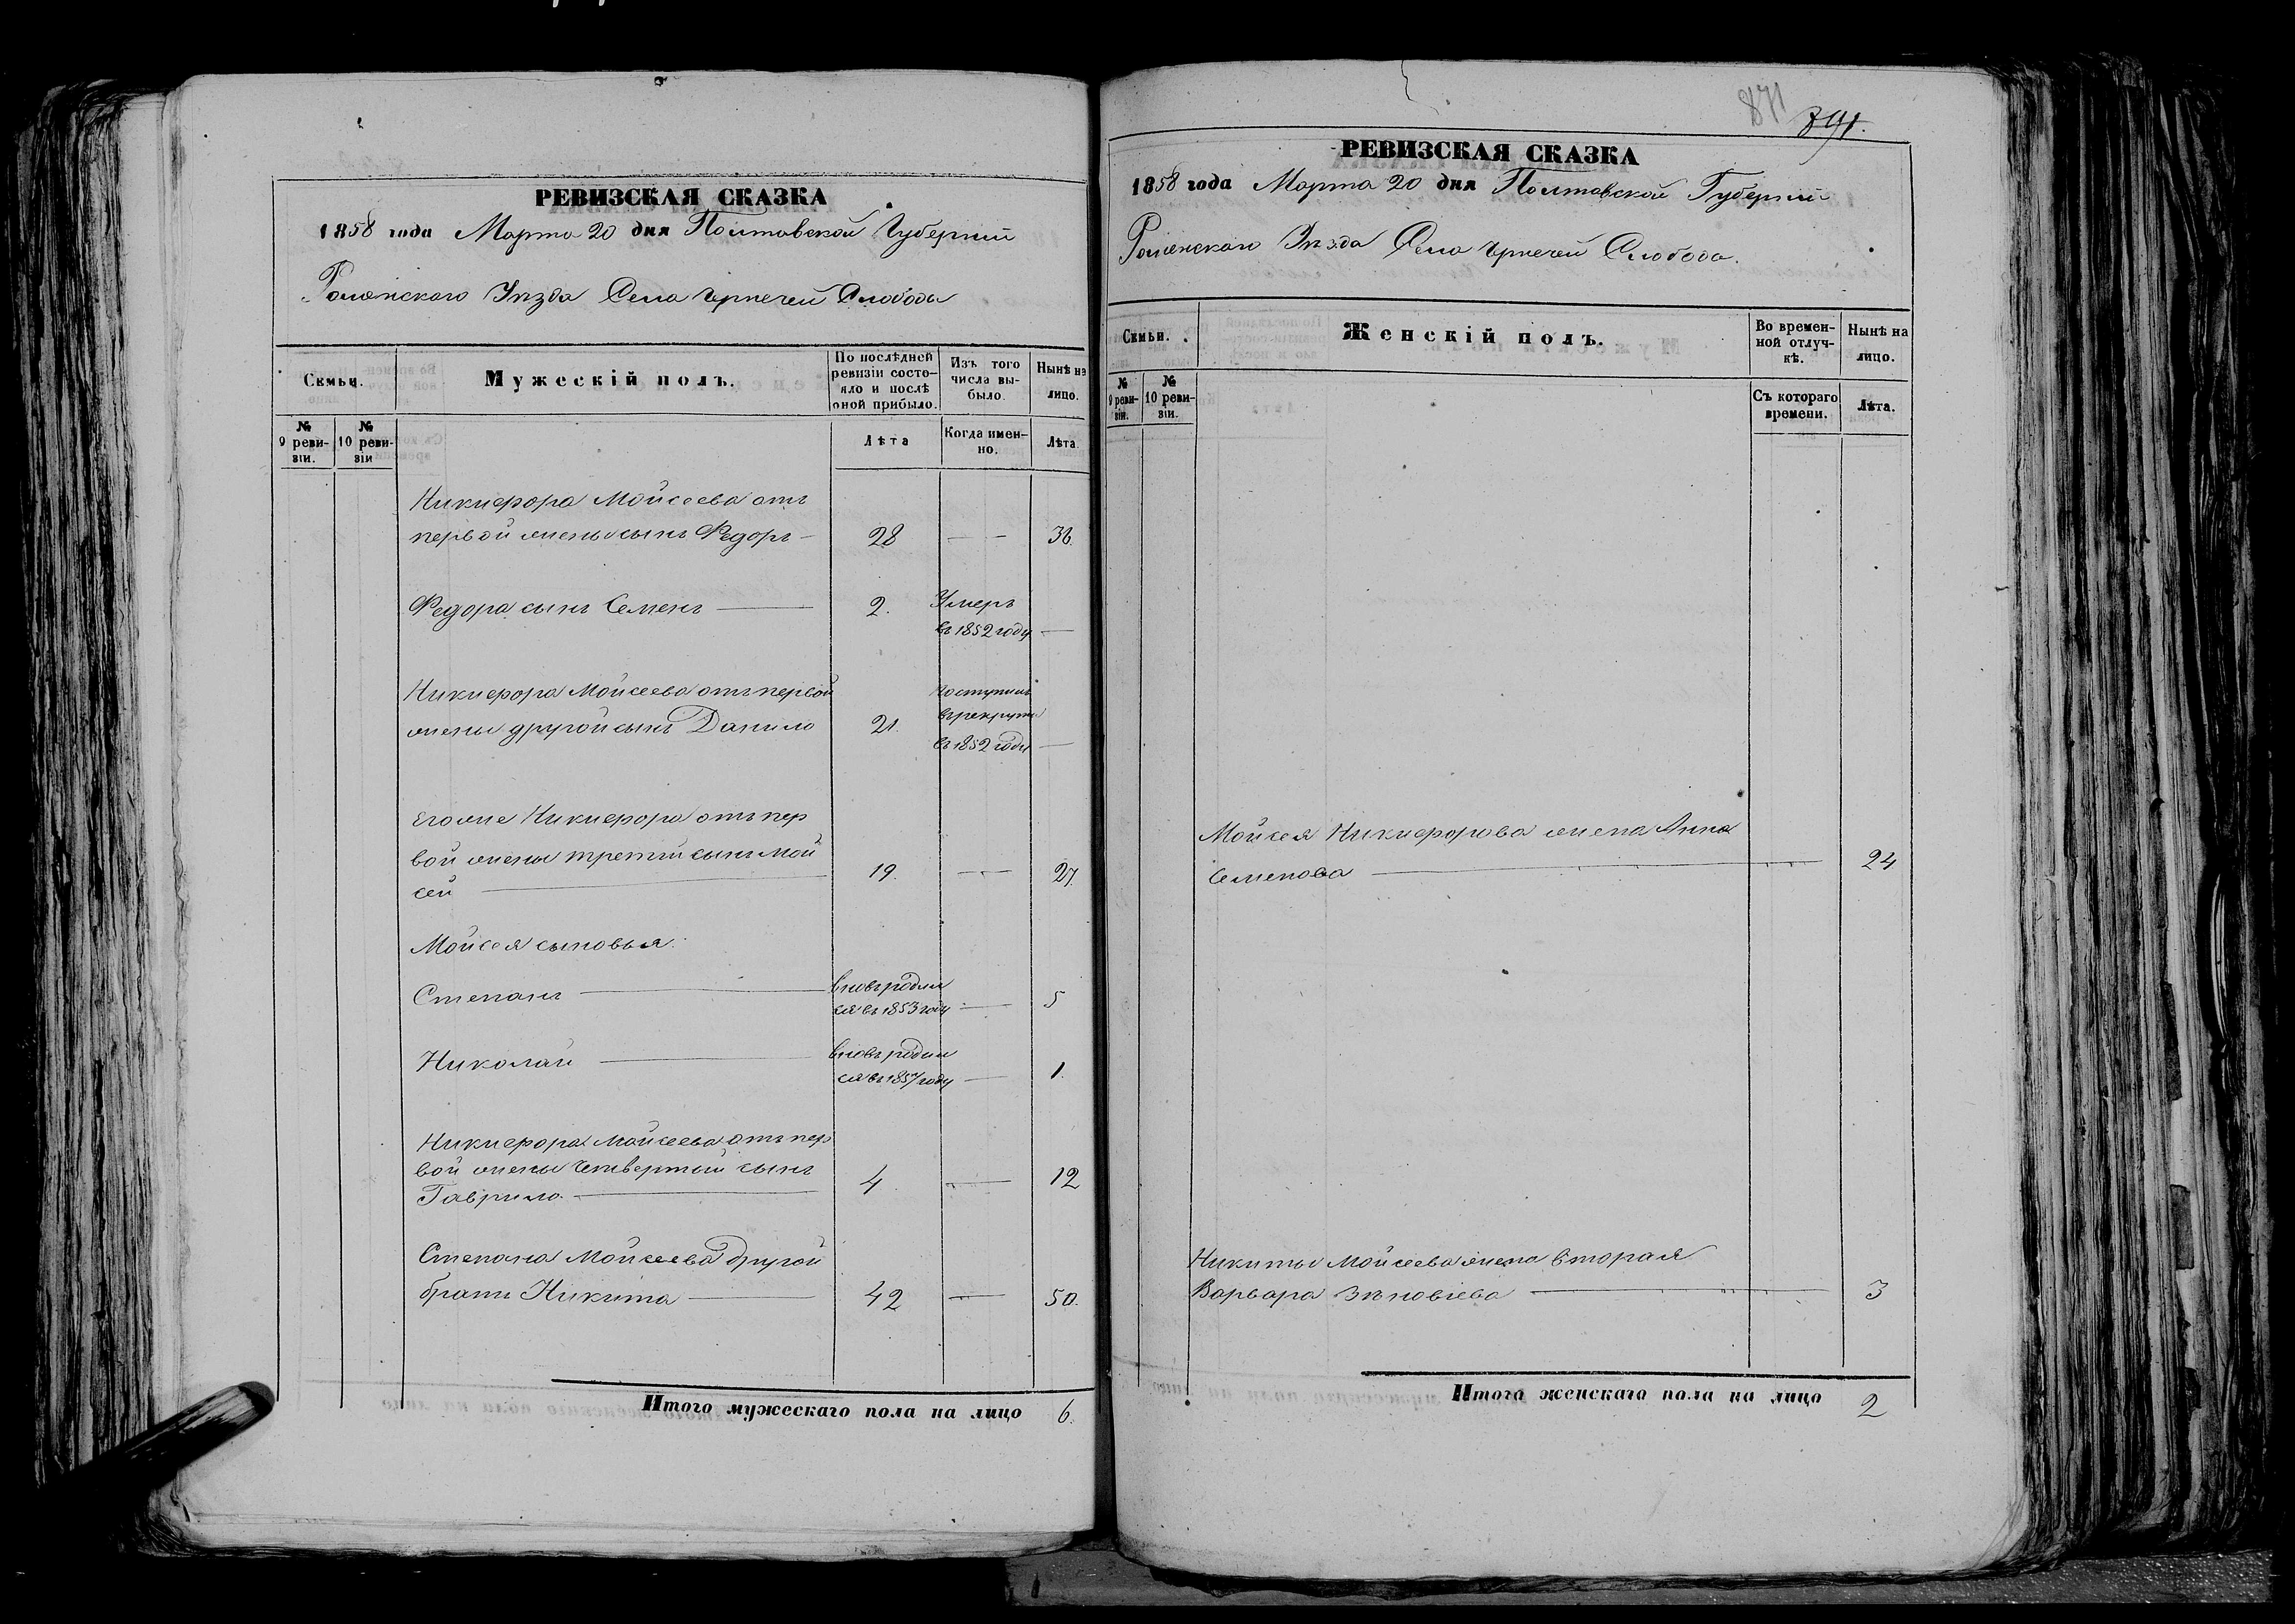 РЕВИЗСКАЯ СКАЗКА
1858 года Марта 20 дня Полтавской Губерніи
Роменскаго Уѣзда Села Чернечей Слободы
Семьи.
Мужескій полъ.
По послѣдней ревизіи состо-
яло и послѣ
оной прибыло.
Изъ того
числа вы-
было.
Нынѣ на
лицо.
№
9 реви-
зіи.
№
10 реви-
зіи
Лѣта
Когда имен-
но.
Лѣта.
Никифора Мойсеева отъ
первой жены сынъ Федоръ — 28 — — 36.
Федора сынъ Семенъ — 2. Умеръ
въ 1852 году —
Никифора Мойсеева отъ первой
жены другой сынъ Данило 21. Поступилъ
в рекруты
въ 1852 году —
Егоже Никифора отъ пер
вой жены третій сынъ Мой
сей — 19. — 27.
Мойсея сыновья:
Степанъ — вновь родил
ся въ 1853 году — 5
Николай — вновь родил
ся въ 1857 году — 1.
Никифора Мойсеева отъ пер
вой жены четвертый сынъ
Гаврило — 4 — 12
Степана Мойсеева другой
братъ Никита — 42 — 50.
Итого мужескаго пола на лицо 6.
871
891.
РЕВИЗСКАЯ СКАЗКА
1858 года Марта 20 дня Полтавской Губерніи
Роменскаго Уѣзда Села Чернечей Слободы.
Семьи.
Женскій полъ.
Во времен-
ной отлуч-
кѣ.
Нынѣ на
лицо.
№
9 реви-
зіи.
№
10 реви-
зіи.
Съ котораго
времени.
Лѣта.
Мойсея Никифорова жена Анна
Семенова — 24
Никиты Мойсеева жена вторая
Варвара Зѣновіева — 3
Итого женскаго пола на лицо 2